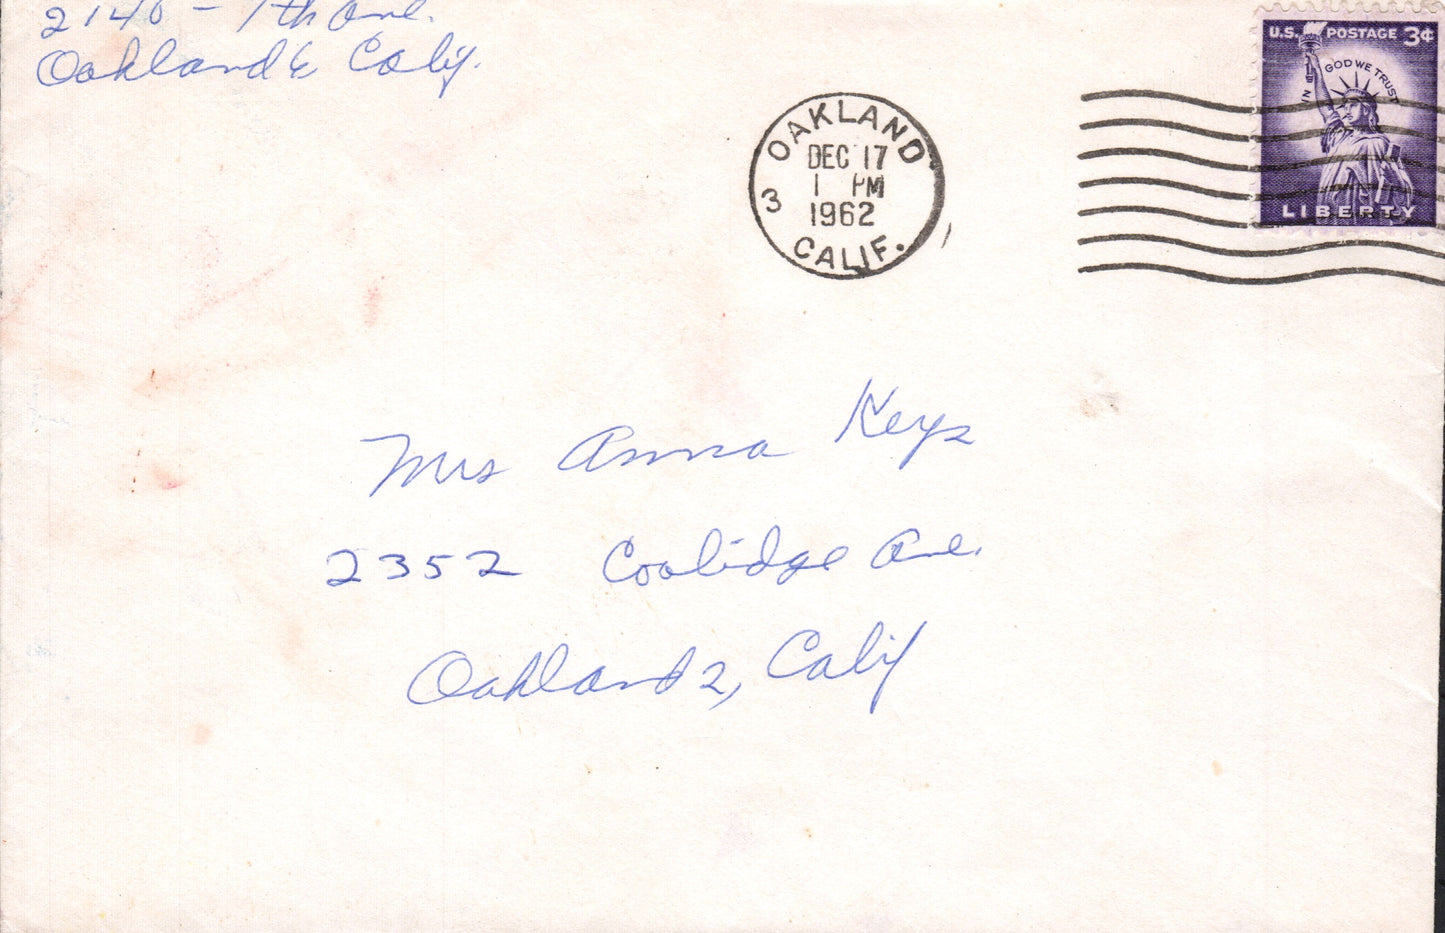 2140 - 7th Ave.
Oakland 6 Calif.
U.S. POSTAGE 3¢
IN GOD WE TRUST
LIBERTY
OAKLAND
DEC 17
1 PM
1962
3
CALIF.
Mrs Anna Keys
2352 Coolidge Ave.
Oakland 2, Calif